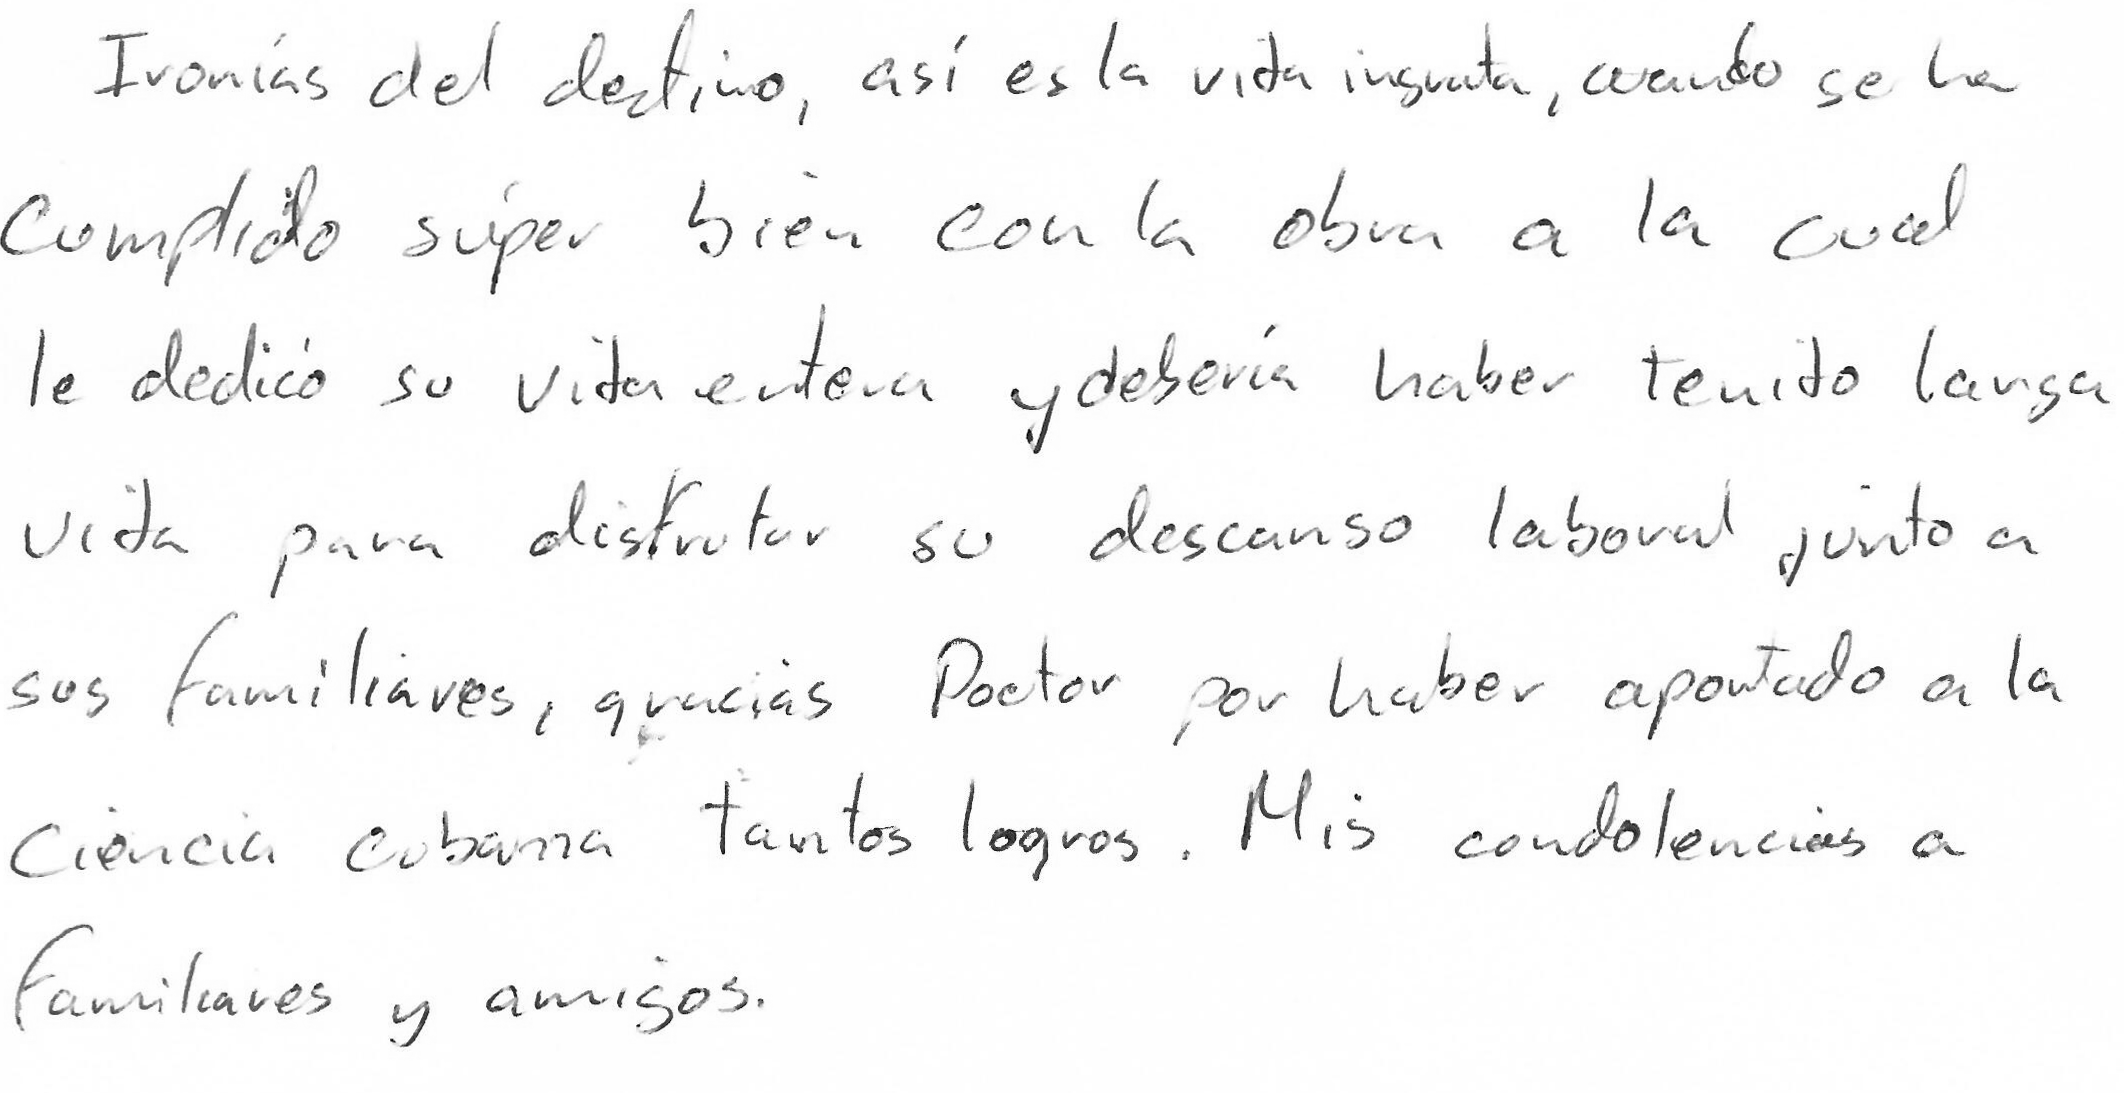 Ironías del destino, así es la vida ingrata, cuando se ha
Cumplido súper bien con la obra a la cual
le dedicó su vida entera y debería haber tenido larga
vida para disfrutar su descanso laboral junto a
sus familiares, gracias Doctor por haber aportado a la
Ciencia cubana tantos logros. Mis condolencias a
familiares y amigos.